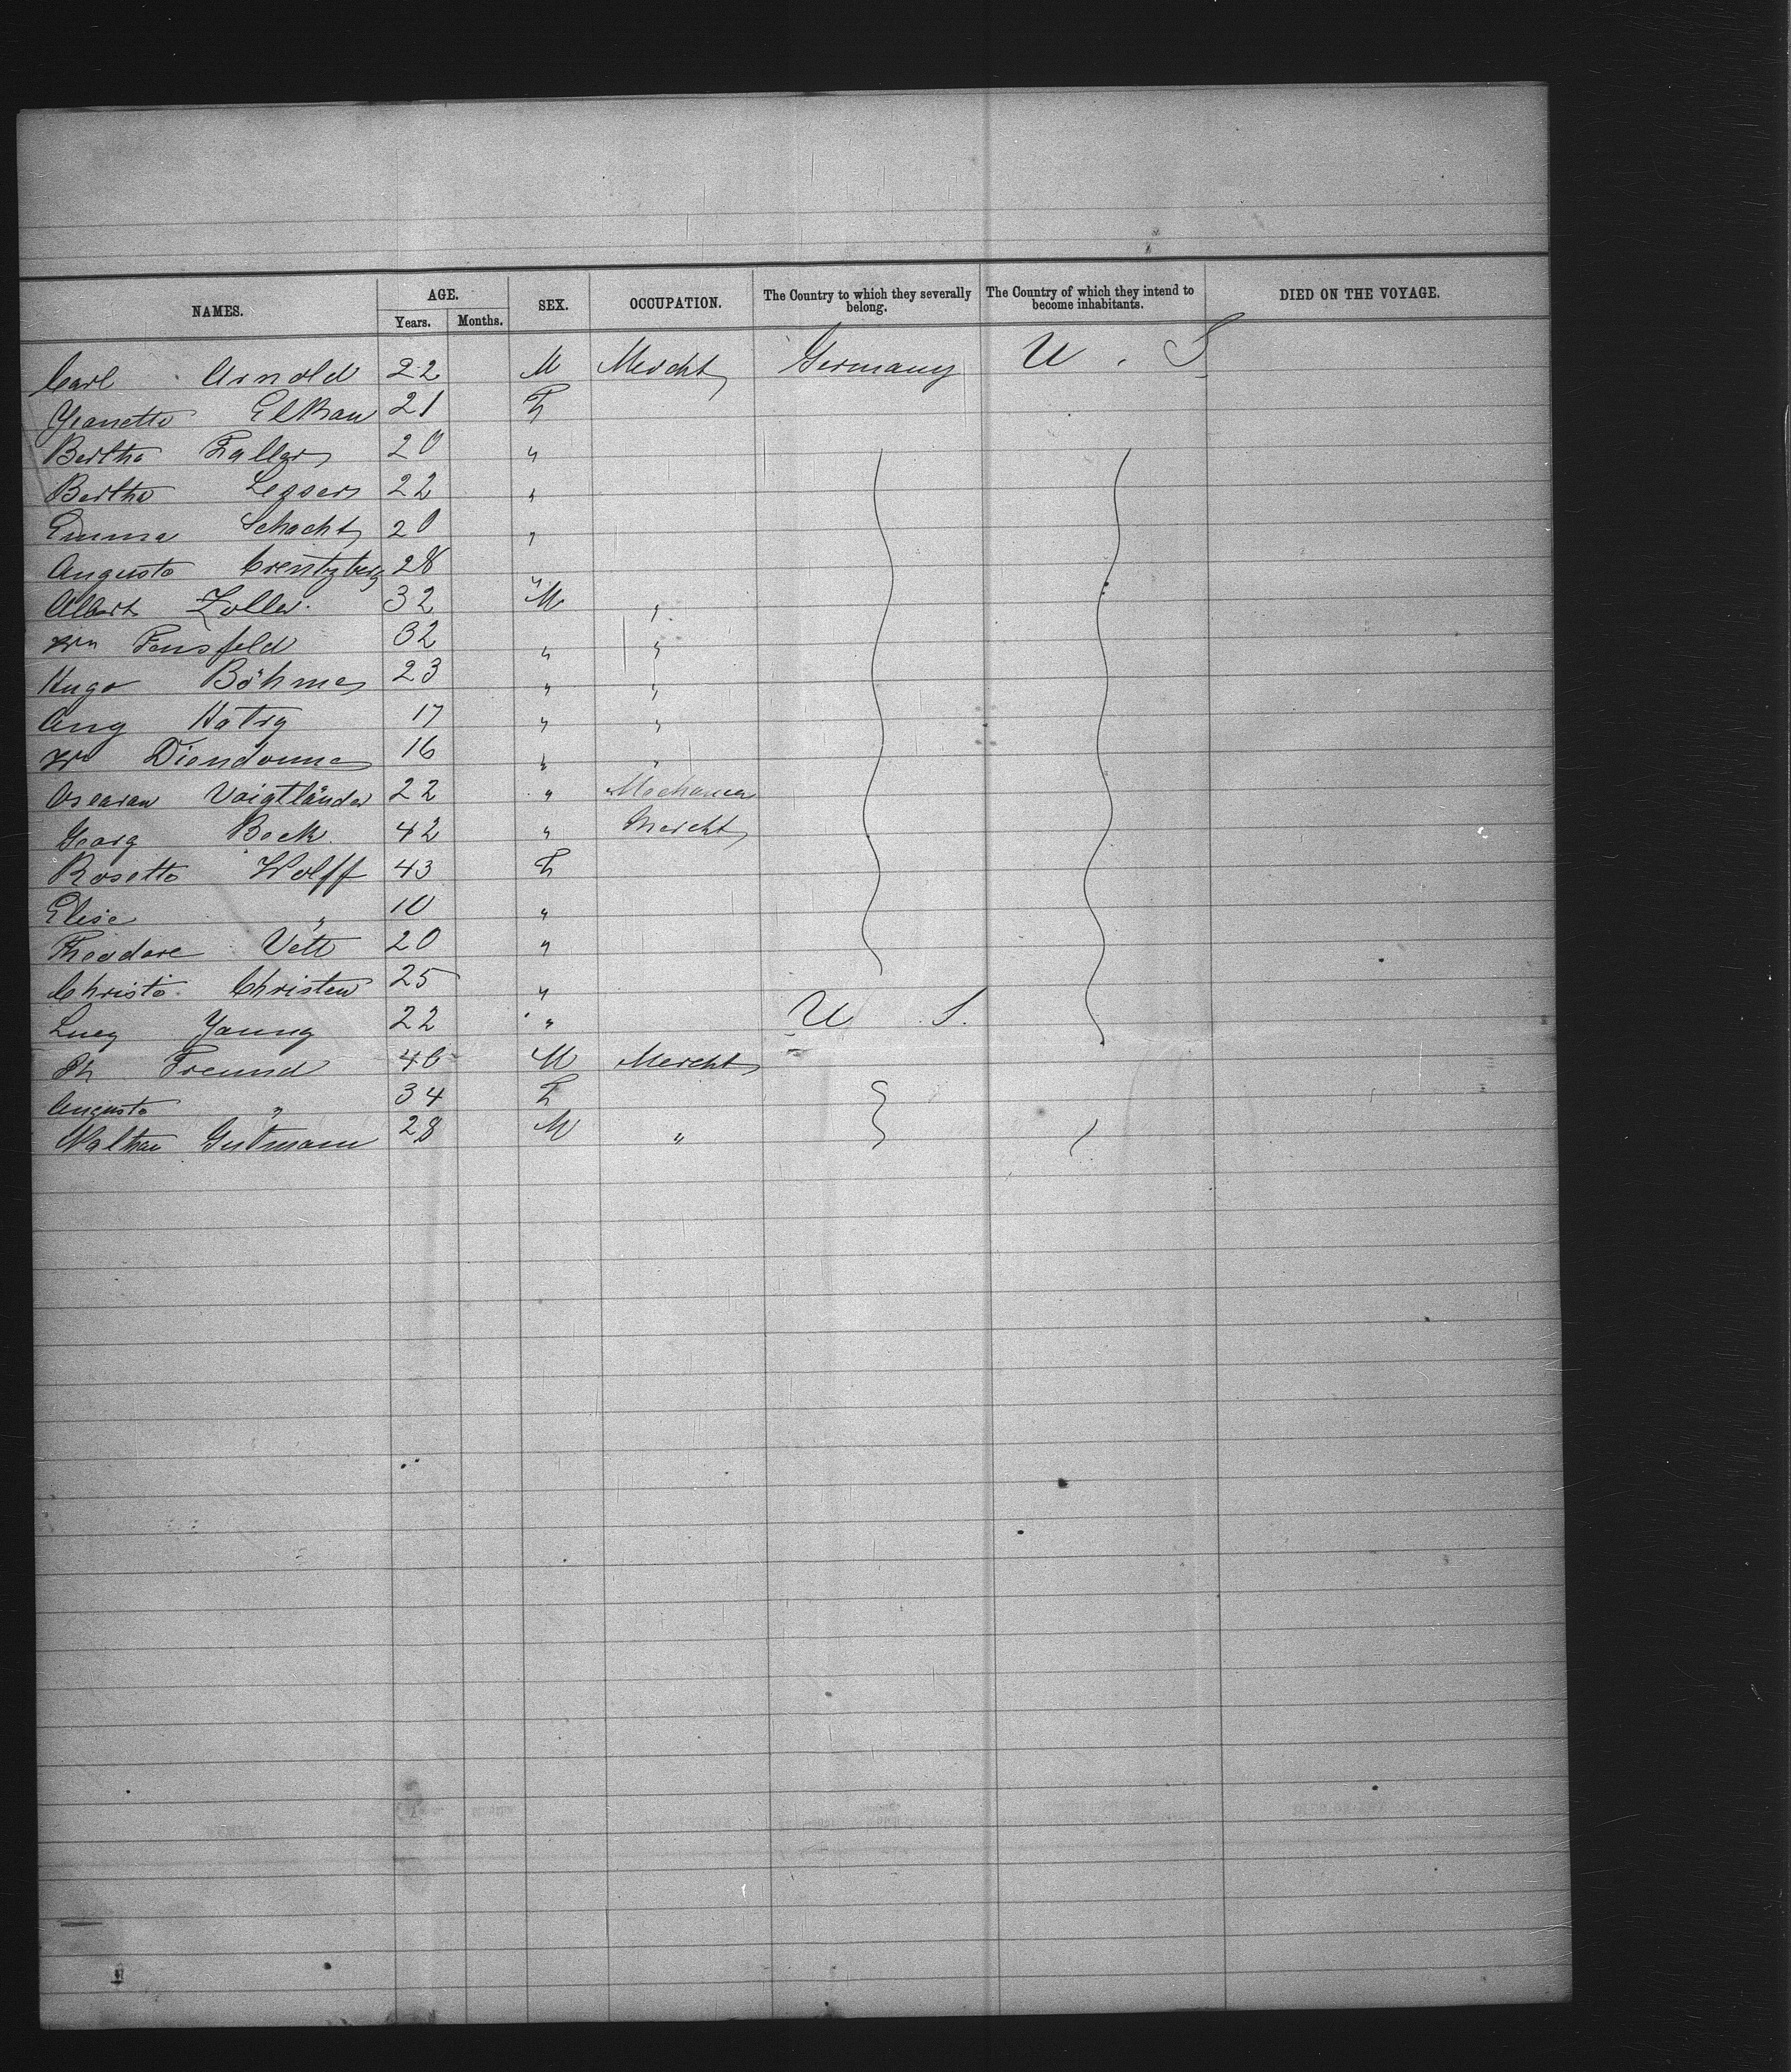 NAMES. AGE. SEX. OCCUPATION. The Country to which they severally belong. The Country of which they intend to become inhabitants. DIED ON THE VOYAGE.
Years. Months.
Carl Arnold 22 M Mercht Germany U. S
Jeanette Elkan 21 F
Bertha Faller 20 "
Bertha Lesser 22 "
Emma Schacht 20 "
Augusta Creutzberg 28 "
Albert Zoller 32 M "
Wm 32 " "
Hugo Böhme 23 " "
Aug Hatry 17 " "
Wm Diendonne 16 " "
Voigtländer 22 " Mechanic
Georg Bock 42 " Mercht
Rosette Wolff 43 F
Elise " 10 "
Theodore Vett 20 "
Christe. Christen 25 "
Lucy Young 22 " U S.
Ph Freund 46 M Mercht
Augusta " 34 F
Walther Gutmann 28 M "